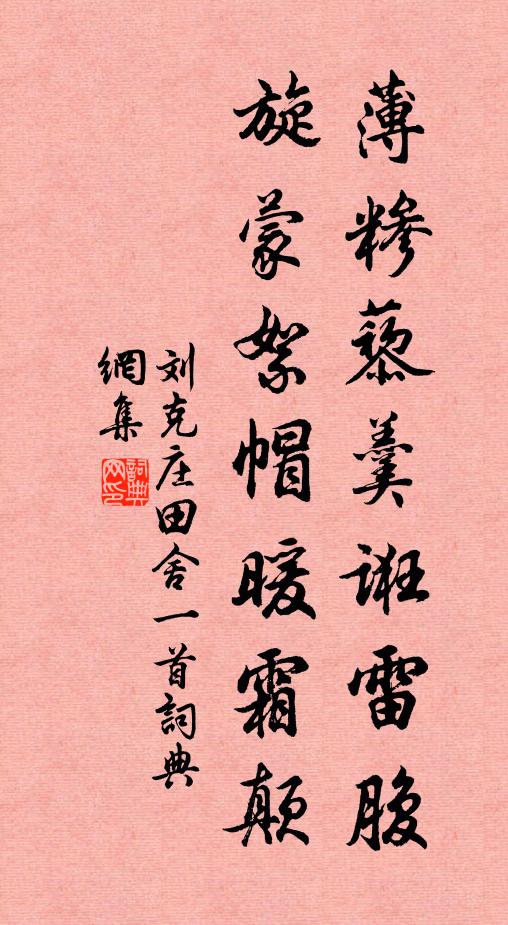 薄糁藜羹诳雷腹
旋蒙絮帽暖霜颠
刘克庄田舍一首詞典
網集
詞典網印